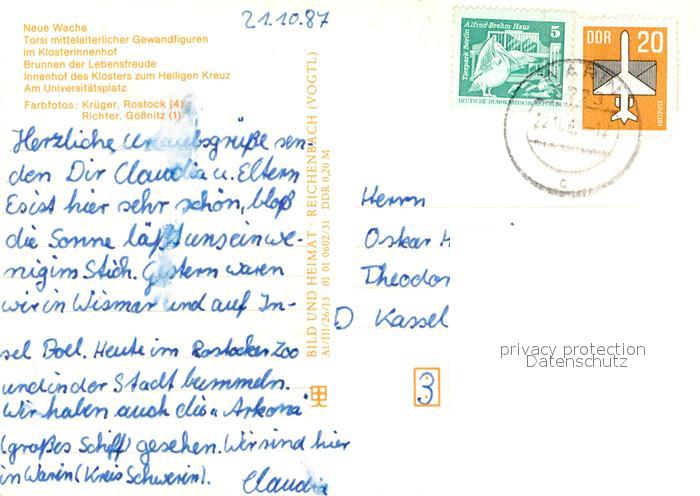 21.10.87
Neue Wache
Torsi mittelalterlicher Gewandfiguren
im Klosterinnenhof
Brunnen der Lebensfreude
Innenhof des Klosters zum Heiligen Kreuz
Am Universitätsplatz
Farbfotos: Krüger, Rostock (4)
Richter, Gößnitz (1)
Herzliche Urlaubsgrüße sen-
den Dir Claudia u. Eltern
Es ist hier sehr schön, bloß
die Sonne läßt uns ein we-
nig im Stich. Gestern waren
wir in Wismar und auf In-
sel Poel. Heute im Rostocker Zoo
und in der Stadt bummeln.
Wir haben auch die „Arkona"
(großes Schiff) gesehen. Wir sind hier
in Warin (Kreis Schwerin).
Claudia
BILD UND HEIMAT · REICHENBACH (VOGTL)
A1/III/26/13 · 01 01 0602/31 · DDR 0,20 M
Alfred-Brehm-Haus
5
Tierpark Berlin
DEUTSCHE DEMOKRATISCHE REPUBLIK
DDR 20
LUFTPOST
Herrn
Oskar H
Theodor
D Kassel
3
privacy protection
Datenschutz